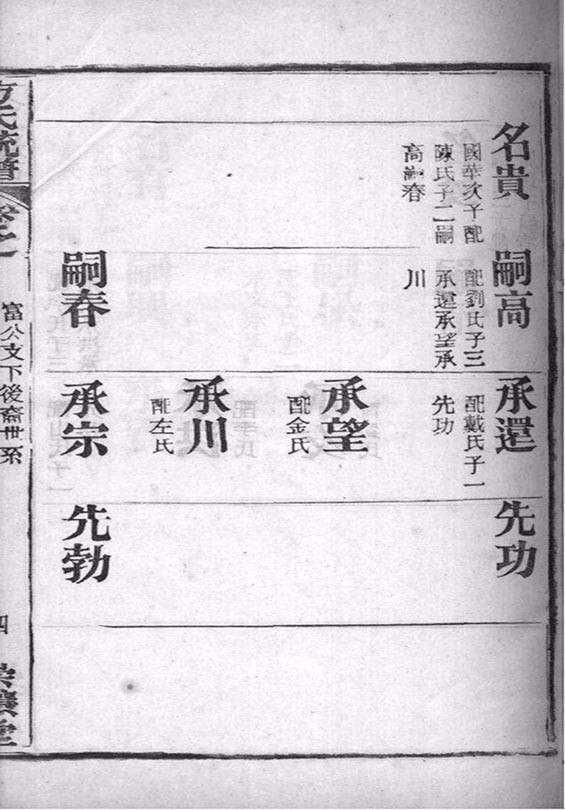 名貴
國華次子配
陳氏子二嗣
高嗣春
嗣高
配劉氏子三
承還承望承
川
嗣春
承還
配戴氏子一
先功
承望
配金氏
承川
配左氏
承宗
先功
先勃
方氏統譜
卷之一
富公支下後裔世系
四